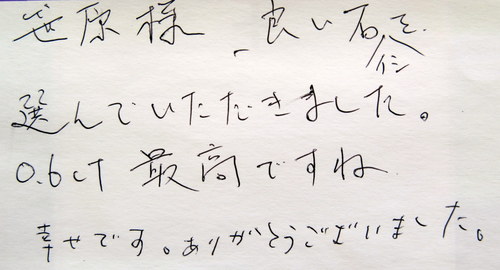 笹原様、良い石を
選んでいただきました。
0.6ct 最高ですね
幸せです。ありがとうございました。